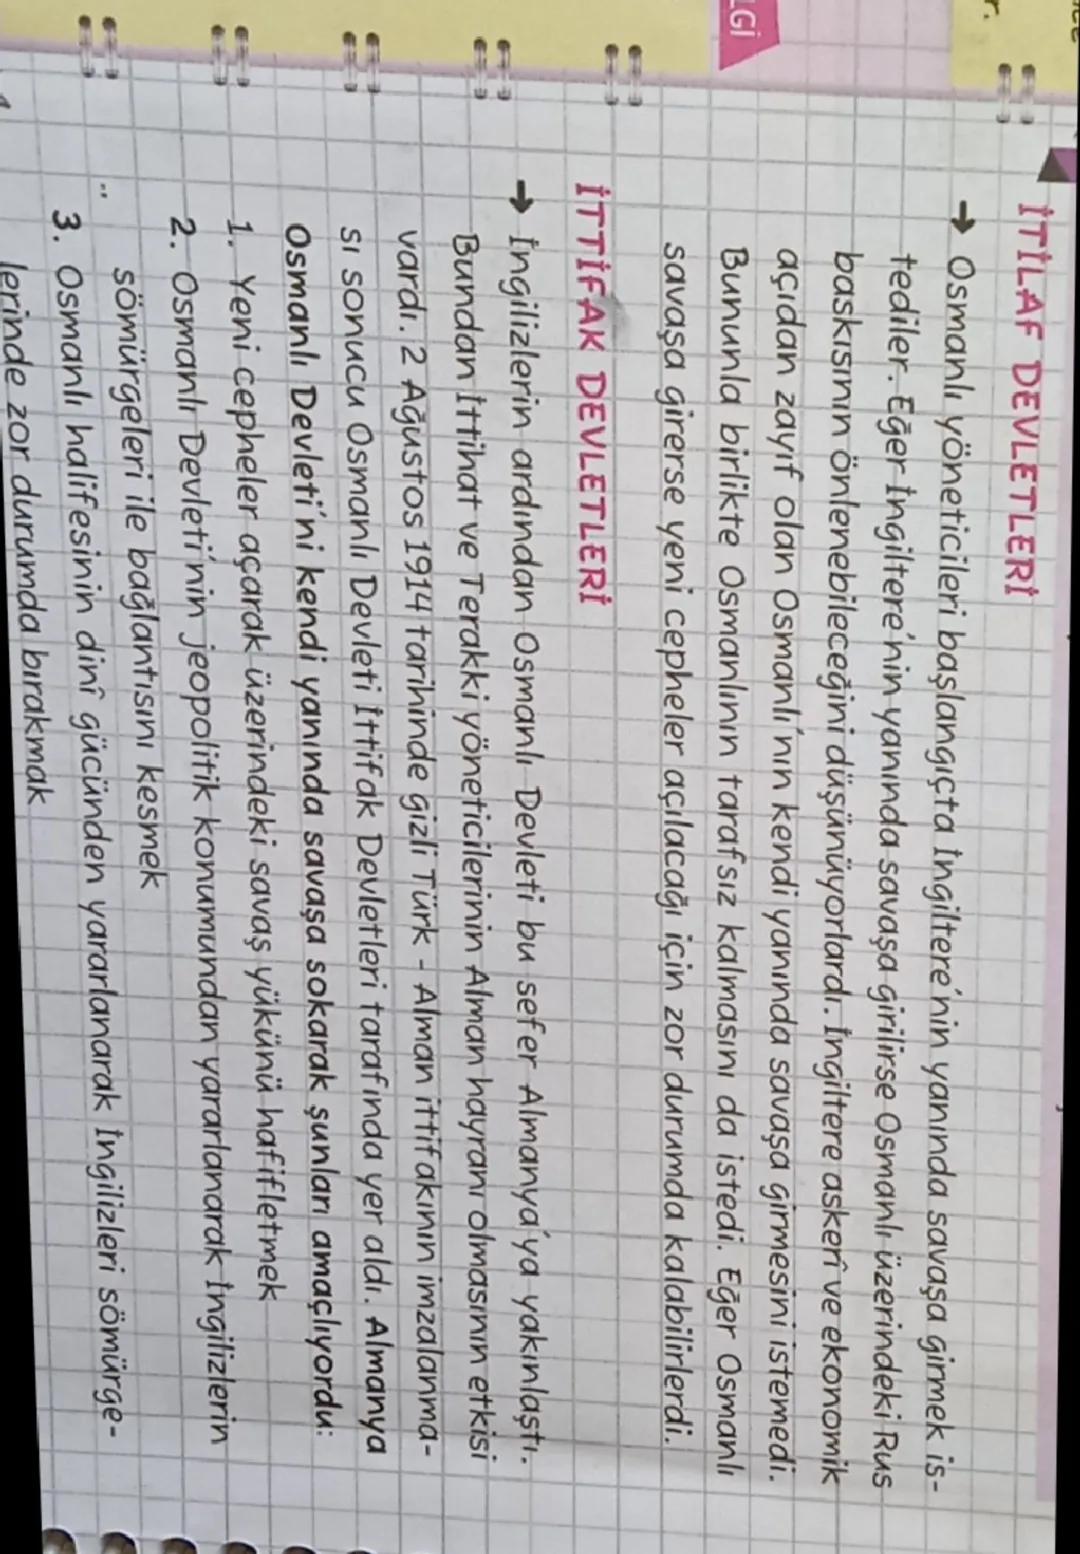 LGİ
İTİLAF DEVLETLERİ
→ Osmanlı yöneticileri başlangıçta İngiltere'nin yanında savaşa girmek is-
tediler. Eğer İngiltere'nin yanında savaşa girilirse Osmanlı üzerindeki Rus
baskısının önlenebileceğini düşünüyorlardı. İngiltere askerî ve ekonomik
açıdan zayıf olan Osmanlı'nın kendi yanında savaşa girmesini istemedi.
Bununla birlikte Osmanlının tarafsız kalmasını da istedi. Eğer Osmanlı
savaşa girerse yeni cepheler açılacağı için zor durumda kalabilirlerdi.
İTTİFAK DEVLETLERİ
→ İngilizlerin ardından Osmanlı Devleti bu sefer Almanya'ya yakınlaştı.
Bundan İttihat ve Terakki yöneticilerinin Alman hayranı olmasının etkisi
vardı. 2 Ağustos 1914 tarihinde gizli Türk - Alman ittifakının imzalanma-
sı sonucu Osmanlı Devleti İttifak Devletleri tarafında yer aldı. Almanya
Osmanlı Devleti'ni kendi yanında savaşa sokarak şunları amaçlıyordu:
1. Yeni cepheler açarak üzerindeki savaş yükünü hafifletmek
2. Osmanlı Devleti'nin jeopolitik konumundan yararlanarak İngilizlerin
sömürgeleri ile bağlantısını kesmek
3. Osmanlı halifesinin dinî gücünden yararlanarak İngilizleri sömürge-
lerinde zor durumda bırakmak